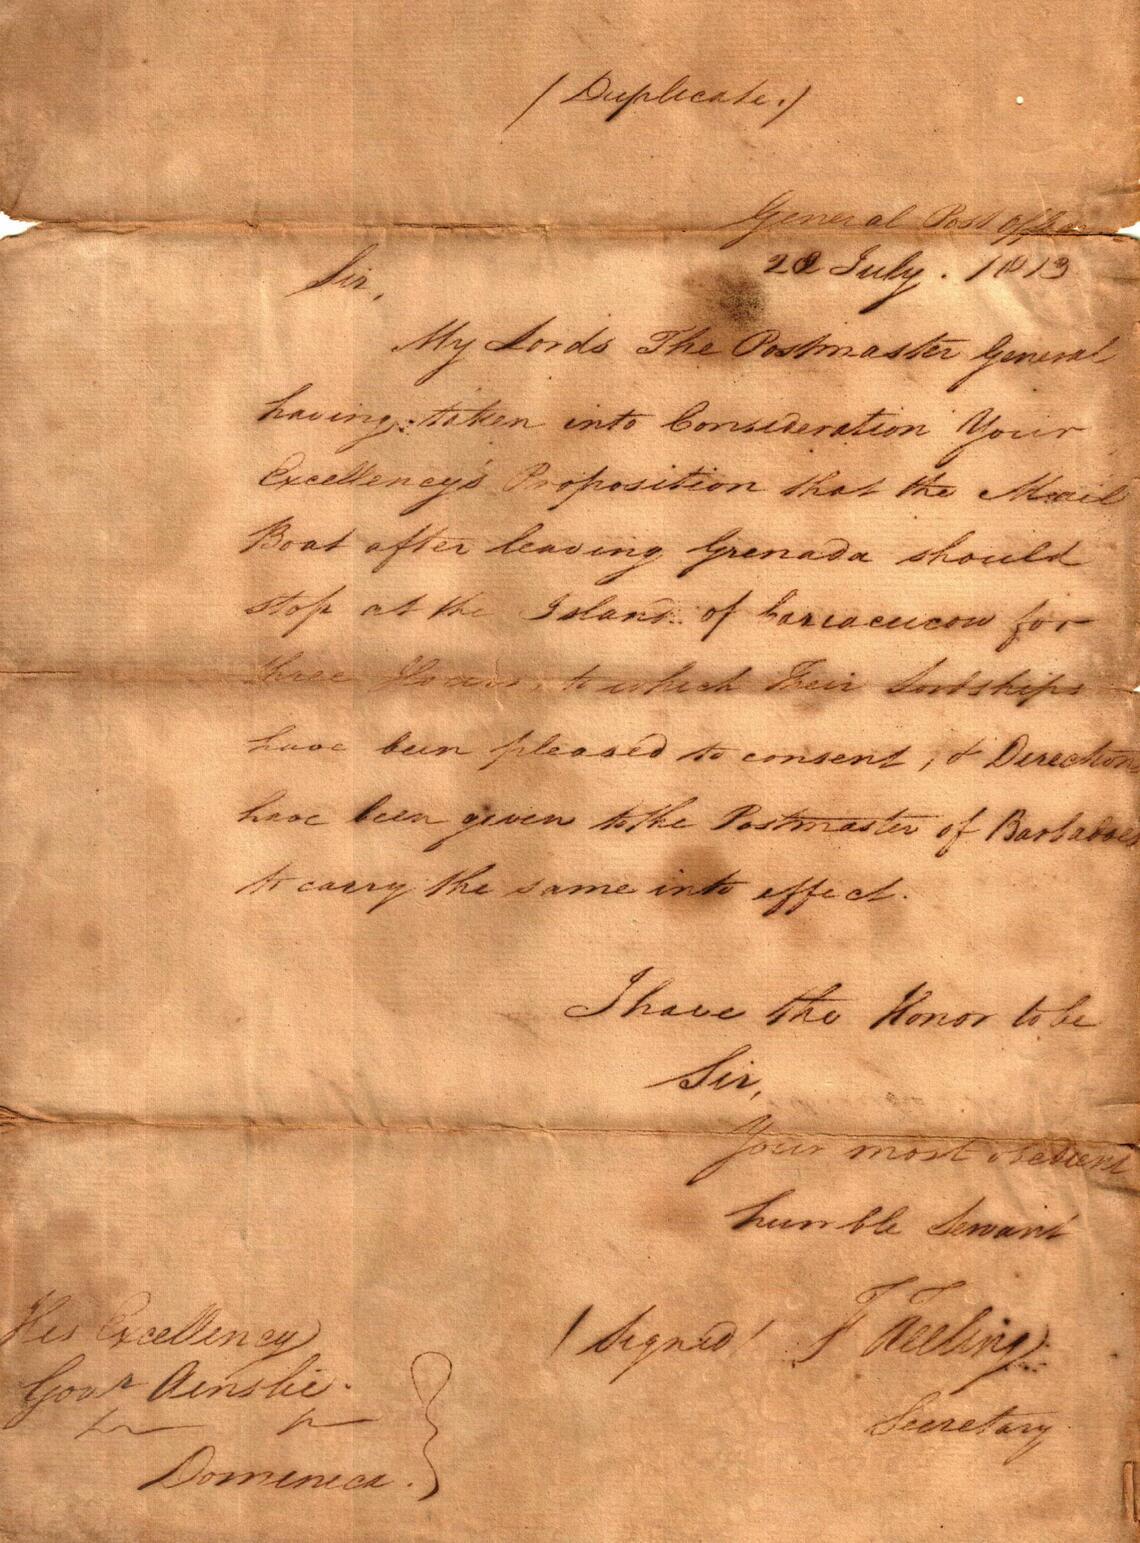 (Duplicate.)
General Post Office
28 July. 1813
Sir,
My Lords The Postmaster General
having taken into Consideration Your
Excellency's Proposition that the Mail
Boat after leaving Grenada should
stop at the Island of Carriacucow for
three Hours, to which Their Lordships
have been pleased to consent, & Directions
have been given to the Postmaster of Barbadoes
to carry the same into effect.
I have the Honor to be
Sir,
Your most obedient
humble Servant
(Signed) F Freeling
Secretary
His Excellency
Govr Ainslie.
Domineca.